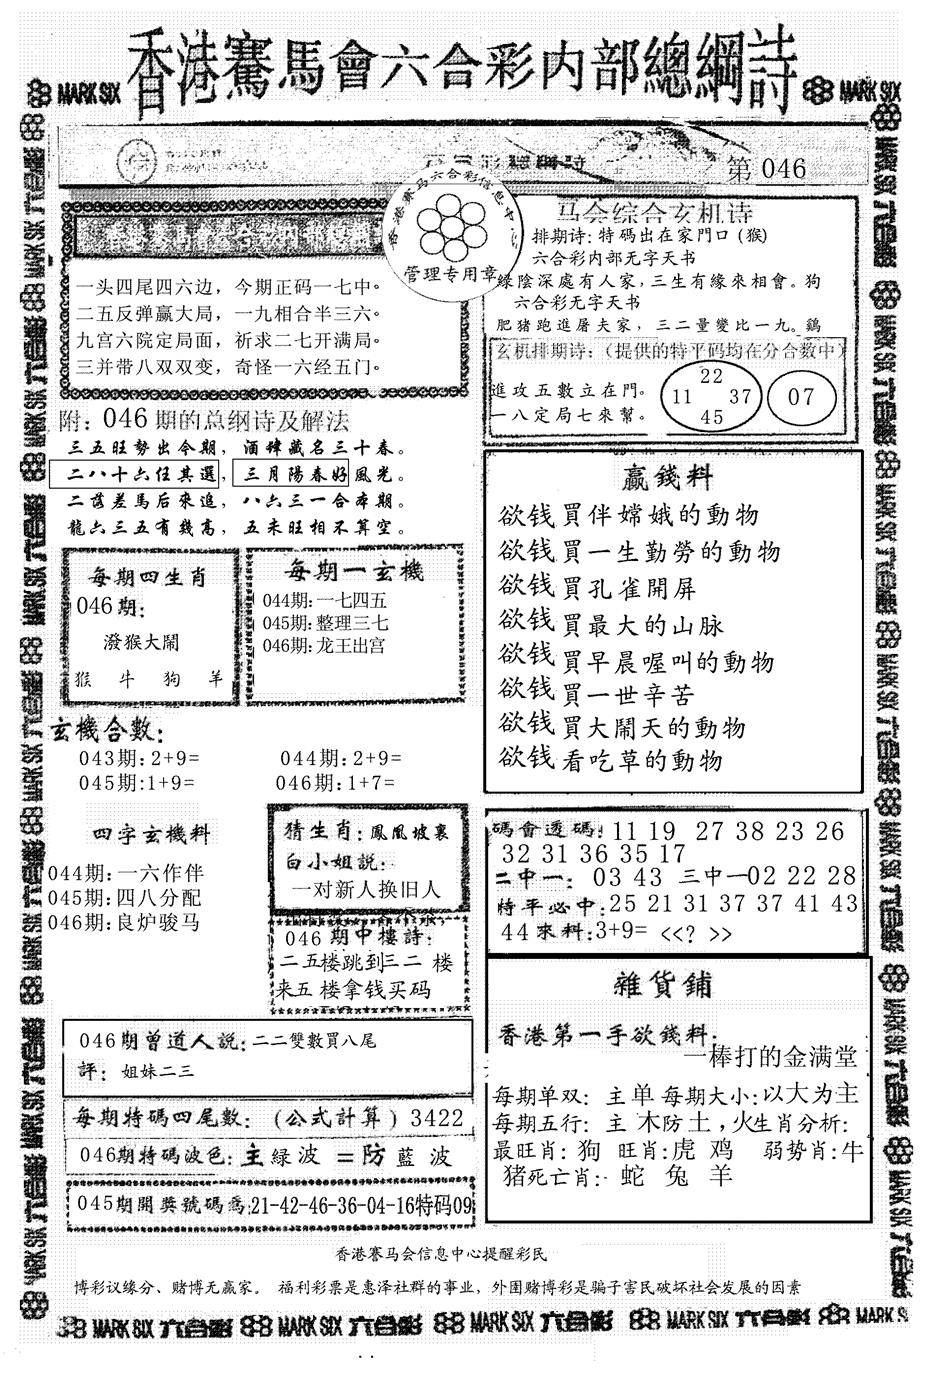 香港賽馬會六合彩内部總綱詩
MARK SIX
MARK SIX
第 046
香港赛马六合彩信息中心
管理专用章
一头四尾四六边，今期正码一七中。
二五反弹赢大局，一九相合半三六。
九宫六院定局面，祈求二七开满局。
三并带八双双变，奇怪一六经五门。
马会综合玄机诗
排期诗: 特碼出在家門口 (猴)
六合彩内部无字天书
緑陰深處有人家, 三生有緣來相會。狗
六合彩无字天书
肥猪跑進屠夫家, 三二量變比一九。鷄
玄机排期诗:（提供的特平码均在分合數中）
進攻五數立在門。
一八定局七來幫。
22
11 37
45
07
附: 046 期的总纲诗及解法
三五旺勢出今期, 酒肆藏名三十春。
二八十六任其選, 三月陽春好風光。
二蕩差馬后來追, 八六三一合本期。
龍六三五有幾高, 五未旺相不算空。
每期四生肖
046期:
潑猴大鬧
猴 牛 狗 羊
每期一玄機
044期:一七四五
045期:整理三七
046期:龙王出宫
赢錢料
欲钱買伴嫦娥的動物
欲钱買一生勤勞的動物
欲钱買孔雀開屏
欲钱買最大的山脉
欲钱買早晨喔叫的動物
欲钱買一世辛苦
欲钱買大鬧天的動物
欲钱看吃草的動物
玄機合數:
043期:2+9= 044期:2+9=
045期:1+9= 046期:1+7=
四字玄機料
044期:一六作伴
045期:四八分配
046期:良炉骏马
猜生肖: 鳳凰坡裏
白小姐説:
一对新人换旧人
046 期中樓詩:
二五楼跳到三二 楼
来五 楼拿钱买码
碼會透碼: 11 19 27 38 23 26
32 31 36 35 17
二中一: 03 43 三中一02 22 28
特平必中:25 21 31 37 37 41 43
44來料:3+9= <<? >>
雜貨鋪
香港第一手欲錢料:
一棒打的金满堂
每期单双: 主单 每期大小:以大为主
每期五行: 主 木防土,火生肖分析:
最旺肖: 狗 旺肖:虎 鸡 弱势肖:牛
猪死亡肖: 蛇 兔 羊
046期曾道人説:二二雙數買八尾
評: 姐妹二三
每期特碼四尾數: (公式計算) 3422
046期特碼波色: 主緑波 =防藍波
045期開獎號碼爲:21-42-46-36-04-16特码09
香港赛马会信息中心提醒彩民
博彩议缘分、赌博无赢家。 福利彩票是惠泽社群的事业，外围赌博彩是骗子害民破坏社会发展的因素
MARK SIX 六合彩 MARK SIX 六合彩 MARK SIX 六合彩 MARK SIX 六合彩 MARK SIX